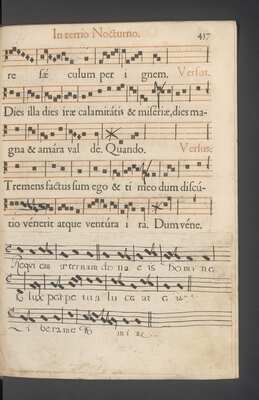 In tertio Nocturno. 437
re sæ culum per i gnem. Versus.
Dies illa dies iræ calamitátis & misériæ, dies ma-
gna & amára val dè. Quando. Versus.
Tremens factus sum ego & tí meo dum discú-
tio vénerit atque ventúra i ra. Dum véne.
Requi em æternam do na e is Domi ne
Et lux perpe tua lu ce at e
i bera me Do mi ne